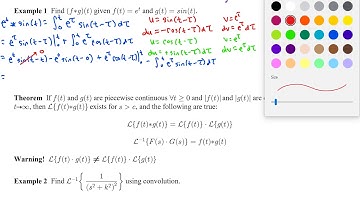 Example 1 Find (f∗g)(t) given f(t) = eᵗ and g(t) = sin(t).
eᵗ ∗ sin(t) = ∫₀ᵗ e^τ sin(t-τ) dτ
u = sin(t-τ) v = e^τ
du = -cos(t-τ) dτ
= e^τ sin(t-τ)|₀ᵗ + ∫₀ᵗ e^τ cos(t-τ) dτ
u = cos(t-τ) v = e^τ
du = +sin(t-τ) dτ
= eᵗ sin(t-t) - e⁰ sin(t-0) + e^τ cos(t-τ)|₀ᵗ - ∫₀ᵗ e^τ sin(t-τ) dτ
=
Theorem If f(t) and g(t) are piecewise continuous ∀t ≥ 0 and |f(t)| and |g(t)| are
t→∞, then ℒ{f(t)∗g(t)} exists for s > c, and the following are true:
ℒ{f(t)∗g(t)} = ℒ{f(t)} · ℒ{g(t)}
ℒ⁻¹{F(s) · G(s)} = f(t)∗g(t)
Warning! ℒ{f(t) · g(t)} ≠ ℒ{f(t)} · ℒ{g(t)}
Example 2 Find ℒ⁻¹{1/(s² + k²)²} using convolution.